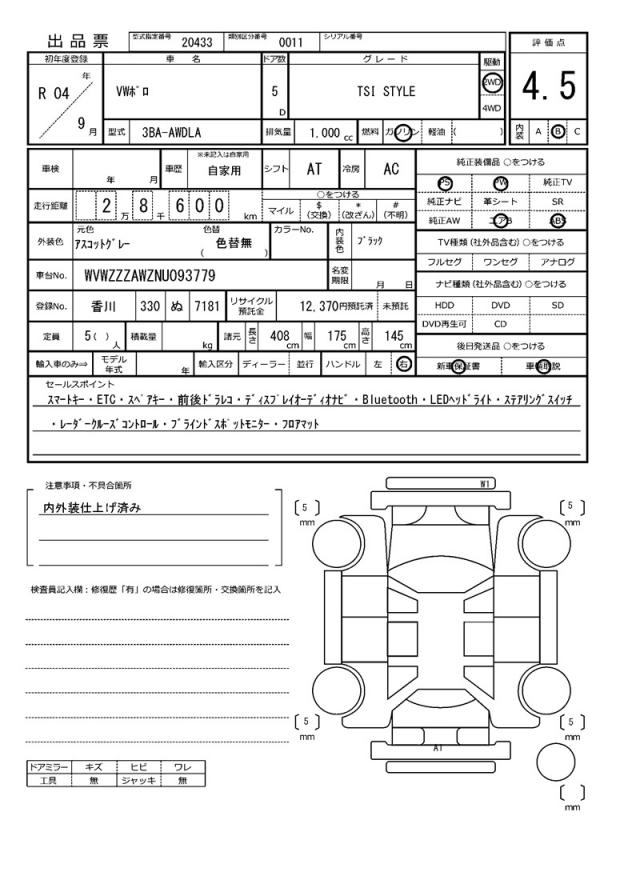 出品票 型式指定番号 20433 類別区分番号 0011 シリアル番号
初年度登録 車名 ドア数 グレード 駆動 評価点
R 04 年 9 月 VWﾎﾟﾛ 5 D TSI STYLE 2WD 4WD 4.5
型式 3BA-AWDLA 排気量 1,000 cc 燃料 ガソリン 軽油 ( ) 内装 A B C
車検 年 月 車歴 ※未記入は自家用 自家用 シフト AT 冷房 AC 純正装備品 ○をつける
PS PW 純正TV
走行距離 2 万 8 千 6 0 0 km ○をつける 純正ナビ 革シート SR
マイル $ (交換) * (改ざん) # (不明) 純正AW エアB ABS
外装色 元色 ｱｽｺｯﾄｸﾞﾚｰ 色替 ( 色替無 ) カラーNo. 内装色 ﾌﾞﾗｯｸ TV種類 (社外品含む) ○をつける
フルセグ ワンセグ アナログ
車台No. WVWZZZAWZNU093779 名変期限 月 日 ナビ種類 (社外品含む) ○をつける
登録No. 香川 330 ぬ 7181 リサイクル預託金 12,370円預託済 未預託 HDD DVD SD
DVD再生可 CD
定員 5( ) 人 積載量 kg 諸元 長さ 408 cm 幅 175 cm 高さ 145 cm 後日発送品 ○をつける
輸入車のみ⇒ モデル年式 年 輸入区分 ディーラー 並行 ハンドル 左 右 新車保証書 車輌取説
セールスポイント
ｽﾏｰﾄｷｰ・ETC・ｽﾍﾟｱｷｰ・前後ﾄﾞﾗﾚｺ・ﾃﾞｨｽﾌﾟﾚｲｵｰﾃﾞｨｵﾅﾋﾞ・Bluetooth・LEDﾍｯﾄﾞﾗｲﾄ・ｽﾃｱﾘﾝｸﾞｽｲｯﾁ
・ﾚｰﾀﾞｰｸﾙｰｽﾞｺﾝﾄﾛｰﾙ・ﾌﾞﾗｲﾝﾄﾞｽﾎﾟｯﾄﾓﾆﾀｰ・ﾌﾛｱﾏｯﾄ
注意事項・不具合箇所
内外装仕上げ済み
W1
5 mm
5 mm
検査員記入欄：修復歴「有」の場合は修復箇所・交換箇所を記入
5 mm
5 mm
A1
ドアミラー キズ ヒビ ワレ
工具 無 ジャッキ 無
mm